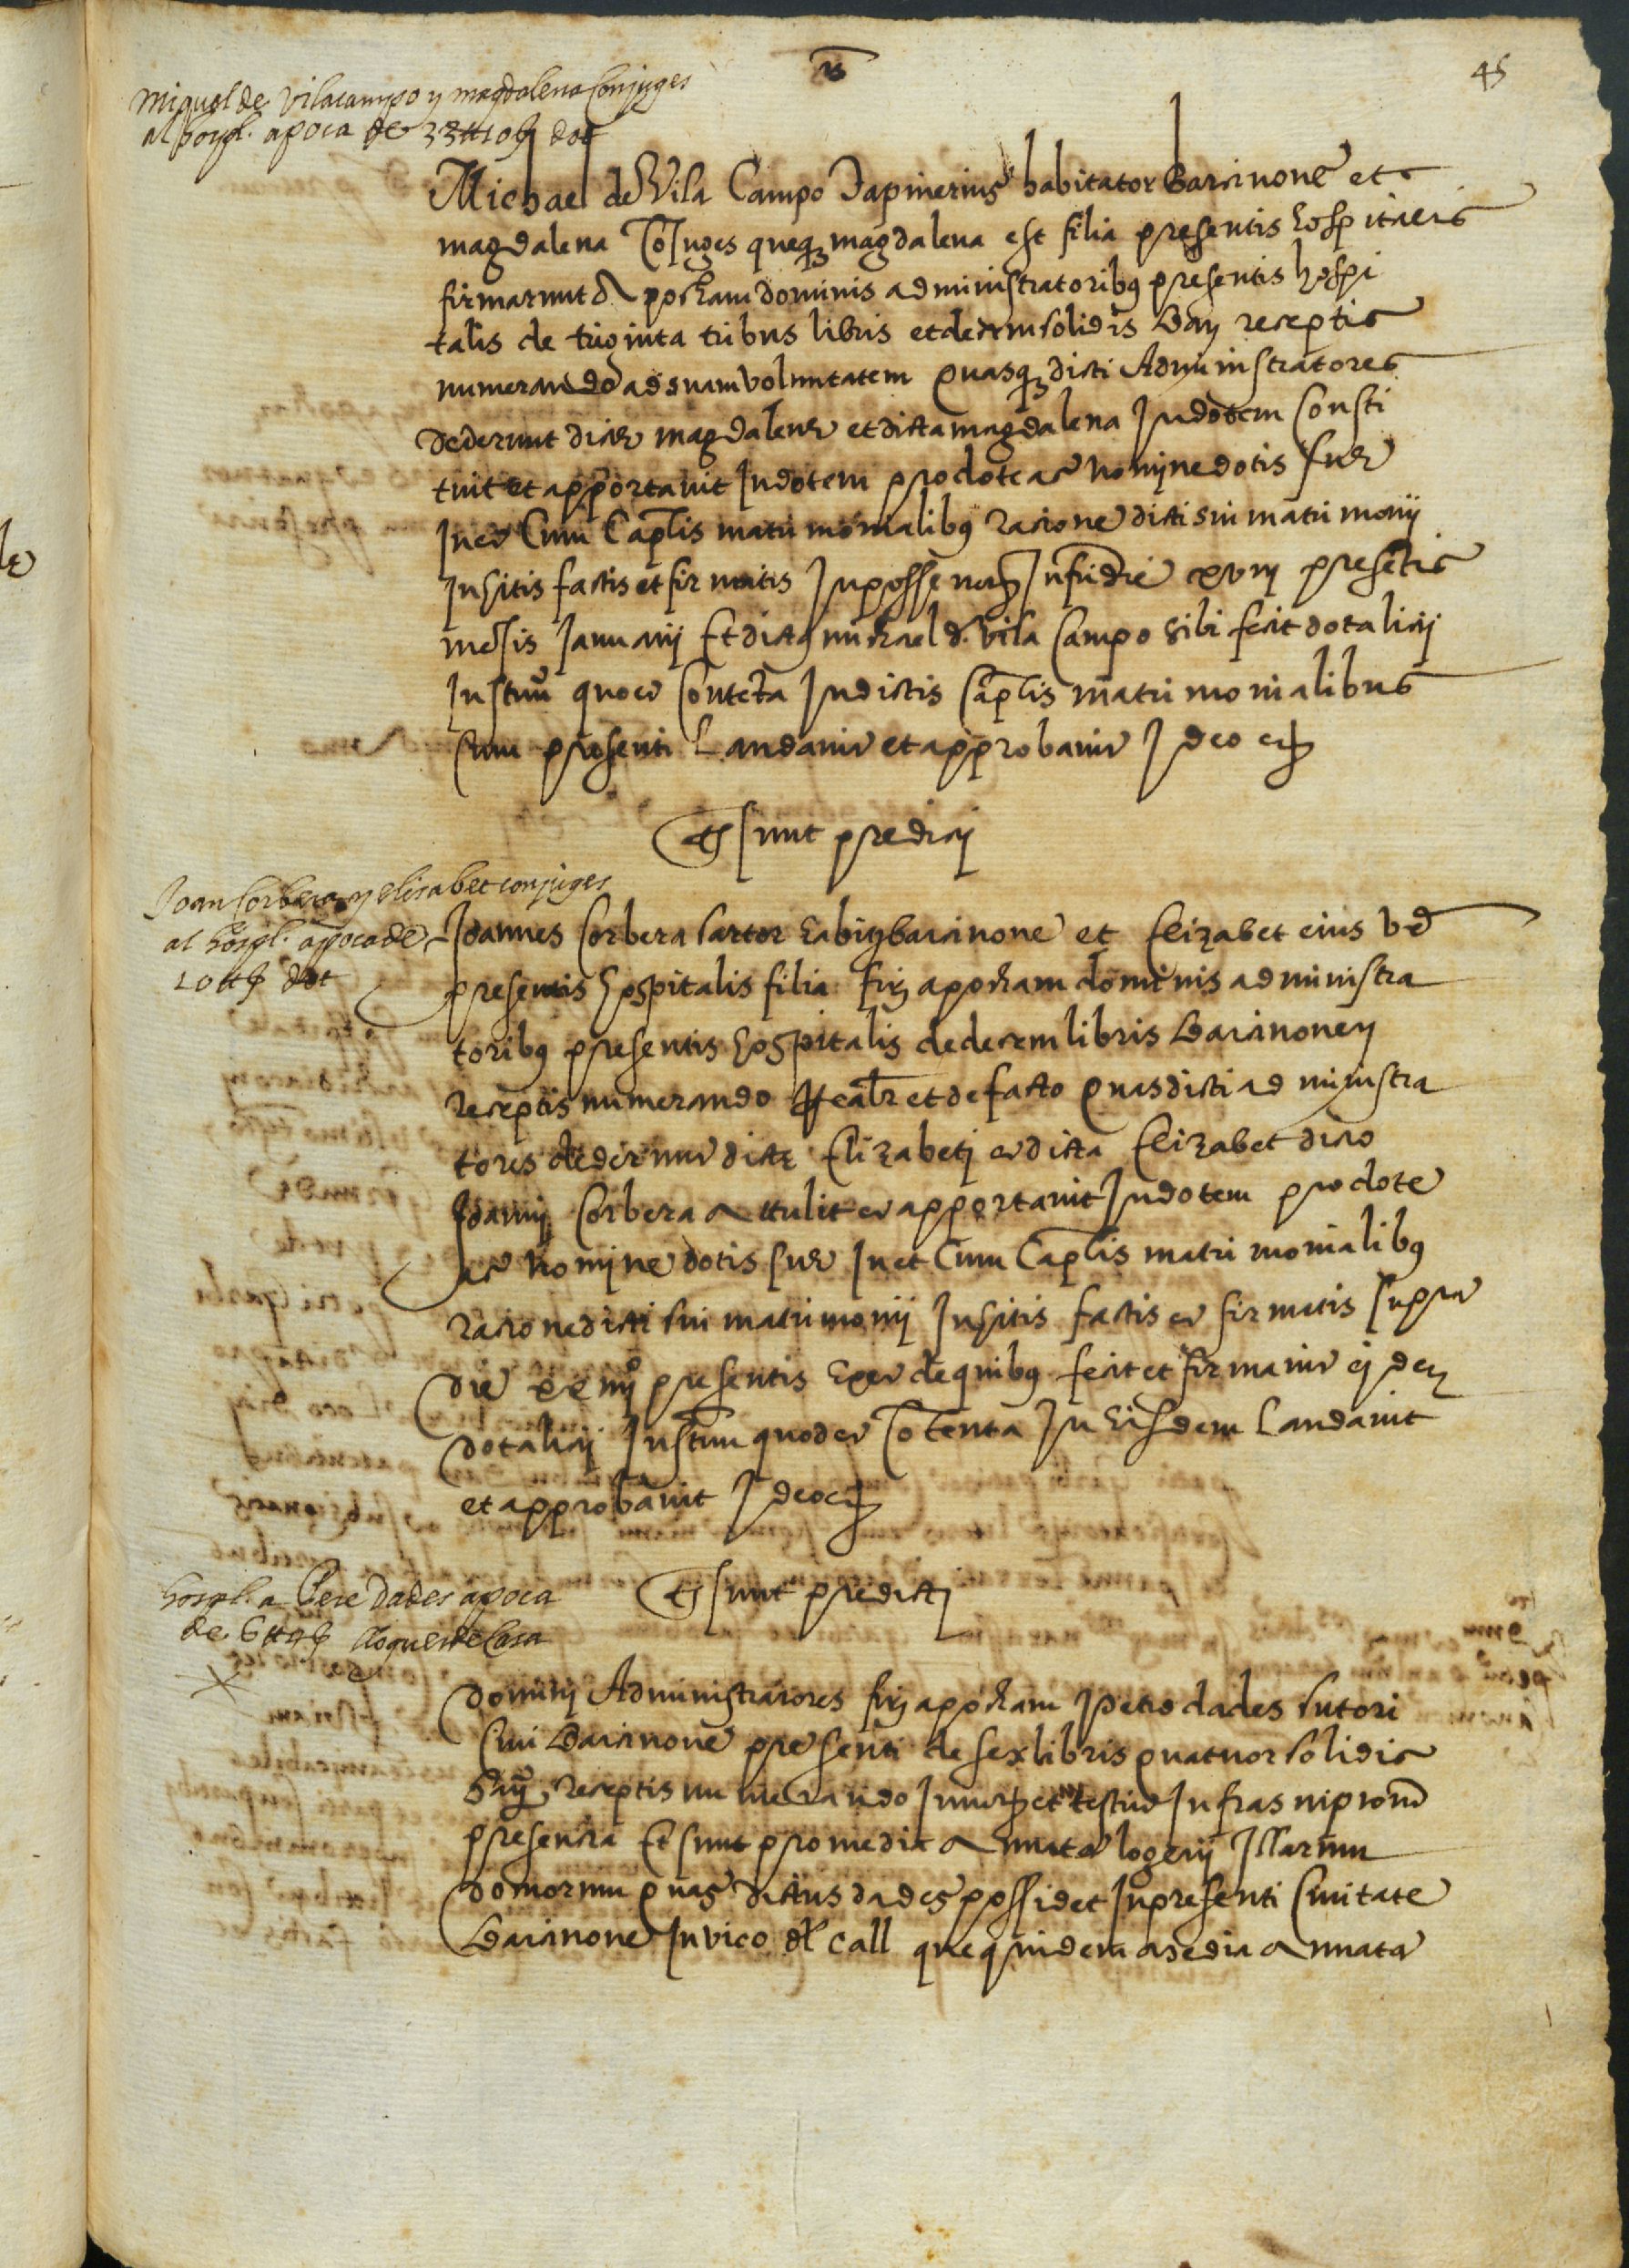 45
Miquel de Vilacampo y magdalena Conjuges
al hospl. apoca de 33 ₶ 10 ß dot
Michael de Vila Campo Tapinerius habitator Barcinone et
magdalena Cõjuges queq; magdalena est filia presentis hospitalis
firmarunt apocham dominis administratoribus presentis hospi
talis de triginta tribus libris et decem solidis Bar receptis
numerando ad suam voluntatem quasq; dicti Administratores
dederunt dicte magdalene et dicta magdalena In dotem Consti
tuit et apportavit In dotem pro dote ac nomine dotis sue
In et Cum Caplis matrimonialibus racione dicti sui matrimonij
Initis factis et firmatis In posse die xviij presētis
mēsis Januarij Et dictus michael d. Vila Campo sibi fecit dotalicij
Instrum quod et Contēta In dictis Caplis matrimonialibus
Cum presenti Laudavit et approbavit Ideo etc
Ts sunt predicti
Joan Corbera y elisabet conjuges
al hospl. appoca de
10 ₶ ß dot
Joannes Corbera sartor Barcinone et Elizabet eius
presentis hospitalis filia fir apocham dominis administra
toribus presentis hospitalis de decem libris Barcinonen
receptis numerando realr et de facto quas dicti administra
tores dederunt dicte Elizabeti et dicta Elizabet dicto
Joanni Corbera attulit et apportavit In dotem pro dote
ac nomine dotis sue In et Cum Caplis matrimonialibus
racione dicti sui matrimonij Initis factis et firmatis super
die presentis et de quibus fecit et firmavit eidem
dotalicij Instrum quod et Cōtenta In Eisdem Laudavit
et approbavit Ideo etc
Ts sunt predicti
hospl. a Pere Dades apoca
de 6 ₶ 4 ß lloguer de Casa
Domini Administratores fir apocham Petro dades sutori
Civi Barcinone presenti de sex libris quatuor solidis
Bar receptis numerando In et testium Infras
presencia Et sunt pro media annata logerij Illarum
domorum quas dictus dades possidet In presenti Civitate
Barcinone In vico dl Call que quidem media annata